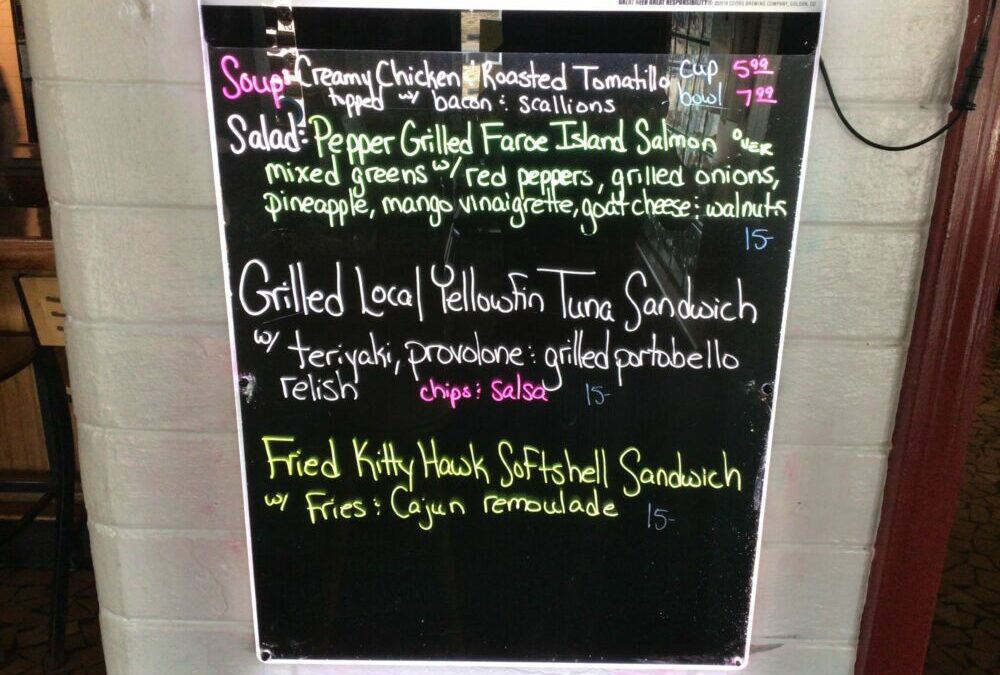 GREAT BEER GREAT RESPONSIBILITY® ©2018 COORS BREWING COMPANY, GOLDEN, CO
Soup: Creamy Chicken & Roasted Tomatillo cup 5.99
topped w/ bacon & scallions bowl 7.99
Salad: Pepper Grilled Faroe Island Salmon over
mixed greens w/ red peppers, grilled onions,
pineapple, mango vinaigrette, goat cheese & walnuts
15-
Grilled Local Yellowfin Tuna Sandwich
w/ teriyaki, provolone & grilled portobello
relish chips & salsa 15-
Fried Kitty Hawk Softshell Sandwich
w/ Fries & Cajun remoulade 15-